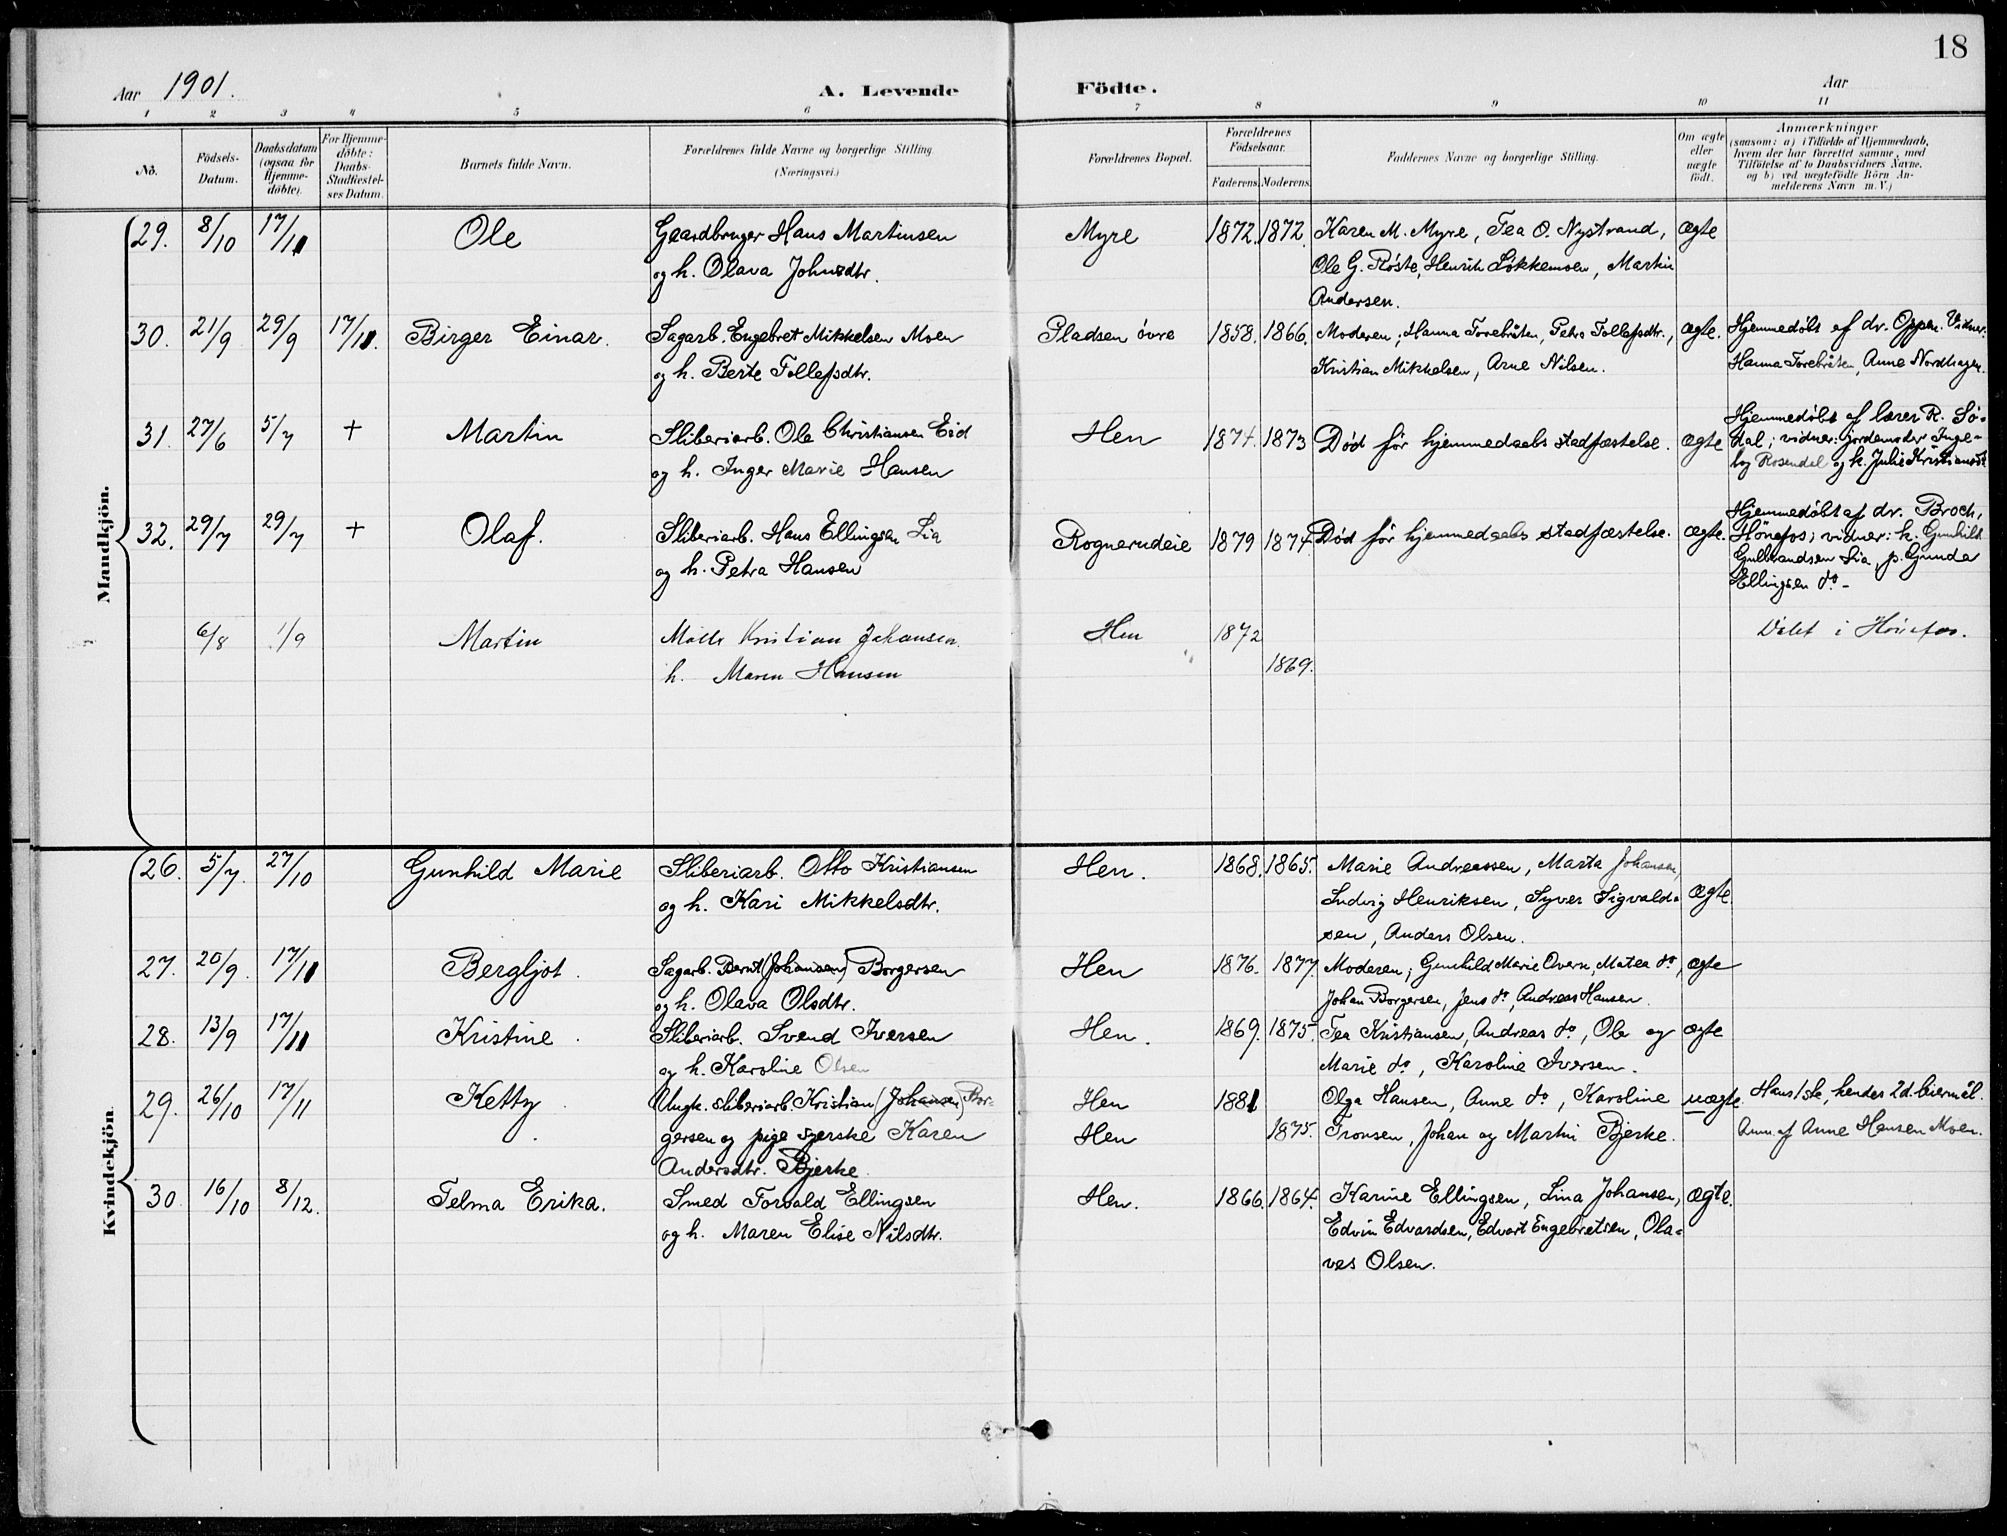 18
Aar 1901. A. Levende Födte. Aar
1 2 3 4 5 6 7 8 9 10 11
No. Födsels-Datum. Daabsdatum (ogsaa for Hjemme-döbte). For Hjemme-döbte: Daabs-Stadfæstel-ses Datum. Barnets fulde Navn. Forældrenes fulde Navne og borgerlige Stilling. (Næringsvei.) Forældrenes Bopæl. Forældrenes Födselsaar. Faderens. Moderens. Faddernes Navne og borgerlige Stilling. Om ægte eller uægte födt. Anmærkninger (saasom: a) i Tilfælde af Hjemmedaab, hvem der har forrettet samme, med Tilföielse af to Daabsvidners Navne, og b) ved uægtefödte Börn An-melderens Navn m. V.)
Mandkjön.
29. 8/10 17/11 Ole Gaardbruger Hans Martinsen Myre 1872. 1872. Karen M. Myre, Tea O. Nystrand, ægte
og h. Olava Johnsdtr. Ole G. Røste, Henrik Løkkemoen, Martin
Andersen.
30. 21/9 29/9 17/11. Birger Einar. Sagarb. Engebret Mikkelsen Moen Pladsen övre 1858. 1866. Moderen, Hanna Torebråten, Petra Tollefsdtr., ægte. Hjemmedøbt af dr. Oppen. Vidner:
og h. Berte Tollefsdtr. Kristian Mikkelsen, Arne Nilsen. Hanna Torebråten, Anne Nordhagen.
31. 27/6 5/7 + Martin Sliberiarb. Ole Christiansen Eid Hen 1874. 1873 Død før hjemmedaabs stadfæstelse. ægte Hjemmedøbt af lærer R. Sö-
og h. Inger Marie Hansen dal; vidner: jordemoder Inge-
borg Rosendal og k. Julie Kristiansdtr
32. 29/7 29/7 + Olaf. Sliberiarb. Hans Ellingsen Lia Rognerudeie 1879 1874 Død før hjemmedaabs stadfæstelse. ægte. Hjemmedøbt af dr. Broch,
og h. Petra Hansen Hönefos; vidner: k. Gunhild
Gulbrandsen Lia, p. Gunda
Ellingsen do-
6/8 1/9 Martin Kristian Johansen. Hen 1872 Døbt i Hönefos.
h. Maren Hansen 1869.
Kvindekjön.
26. 5/7. 27/10 Gunhild Marie Sliberiarb. Otto Kristiansen Hen. 1868. 1865. Marie Andreassen, Marta Johansen,
og h. Kari Mikkelsdtr. Ludvig Henriksen, Syver Sigvald- ægte
sen, Anders Olsen.
27. 20/9. 17/11 Bergljot. Sagarb. Bernt (Johansen) Borgersen Hen 1876. 1877. Moderen, Gunhild Marie Overn, Matea do, ægte
og h. Olava Olsdtr. Johan Borgersen, Jens do, Andreas Hansen.
28. 13/9 17/11 Kristine. Sliberiarb. Svend Iversen Hen. 1869. 1875. Tea Kristiansen, Andreas do, Ole og ægte
og h. Karoline Olsen Marie do, Karoline Iversen.
29. 26/10 17/11 Ketty. Ungk. sliberiarb. Kristian (Johansen) Bor- Hen 1881 Olga Hansen, Anne do, Karoline uægte. Hans 1ste, hendes 2d. leiermål.
gersen og pige syerske Karen Hen 1875. Tronsen, Johan og Martin Bjerke. Anm. af Anne Hansen Moen.
Andersdtr. Bjerke.
30. 16/10 8/12. Telma Erika. Smed Torvald Ellingsen Hen. 1866. 1864. Karine Ellingsen, Lina Johansen, ægte.
og h. Maren Elise Nilsdtr. Edvin Edvardsen, Edvart Engebretsen, Ola-
ves Olsen.